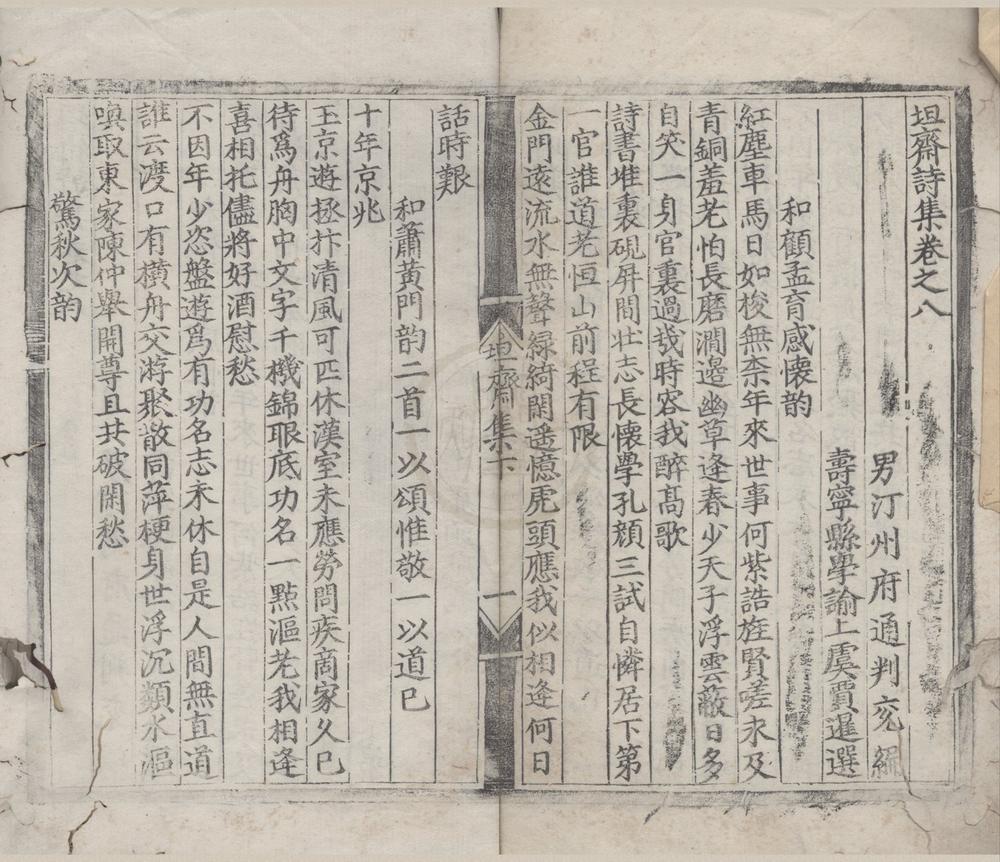 坦齋詩集卷之八
男汀州府通判兗編
壽寧縣學諭上虞賈暹選
和顧孟育感懷韵
紅塵車馬日如梭無柰年來世事何紫誥旌賢嗟未及
青銅羞老怕長磨澗邊幽草逢春少天子浮雲蔽日多
自笑一身官裏過幾時容我醉髙歌
詩書堆裏硯屏間壯志長懷學孔顔三試自憐居下第
一官誰道老恒山前程有限
金門遠流水無聲緑綺閑遥憶虎頭應我似相逢何日
坦齋集下
一
話時艱
和蕭黄門韵二首一以頌惟敬一以道已
十年京兆
玉京遊拯抃清風可匹休漢室未應勞問疾商家久已
待爲舟胸中文字千機錦眼底功名一點漚老我相逢
喜相托儘將好酒慰愁
不因年少恣盤遊爲有功名志未休自是人間無直道
誰云渡口有横舟交游聚散同萍梗身世浮沉類水漚
嗔取東家陳仲舉開尊且共破閑愁
驚秋次韵